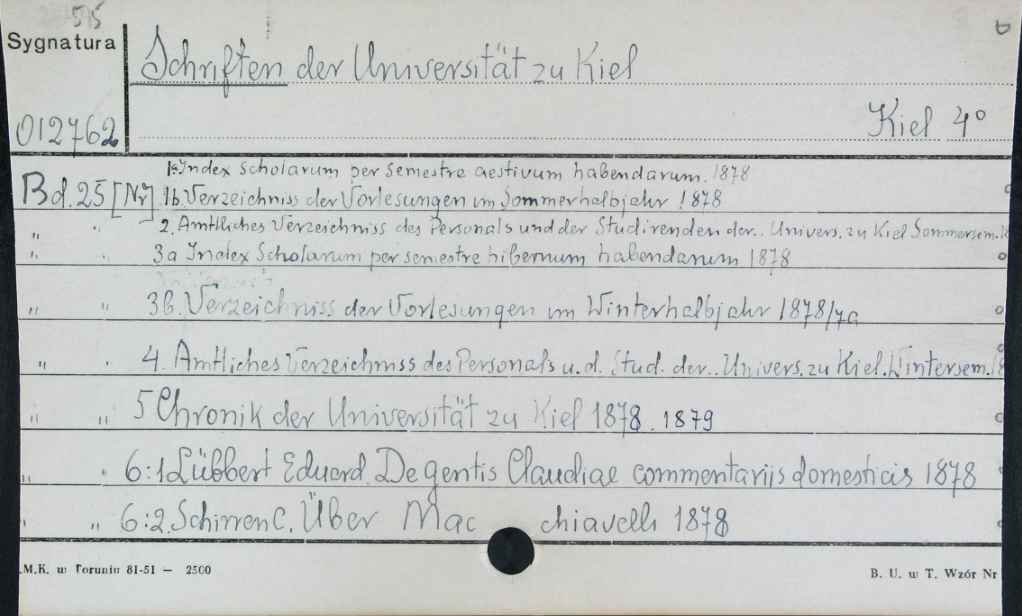 515
Sygnatura
Schriften der Universität zu Kiel
012762
Kiel 4°
1a. Index scholarum per semestre aestivum habendarum. 1878
Bd. 25 [Nr] 1b. Verzeichniss der Vorlesungen im Sommerhalbjahr 1878
" " 2. Amtliches Verzeichniss des Personals und der Studirenden der.. Univers. zu Kiel Sommersem. 18
" " 3a Index Scholarum per semestre hibernum habendarum 1878
" " 3b. Verzeichniss der Vorlesungen im Winterhalbjahr 1878/79
" " 4. Amtliches Verzeichniss des Personals u. d. Stud. der.. Univers. zu Kiel. Wintersem. 18
" " 5 Chronik der Universität zu Kiel 1878. 1879
" " 6:1 Lübbert Eduard. De gentis Claudiae commentariis domesticis 1878
" " 6:2. Schirren C. Über Mac chiavelli 1878
.M.K. w Toruniu 81-51 — 2500
B. U. w T. Wzór Nr